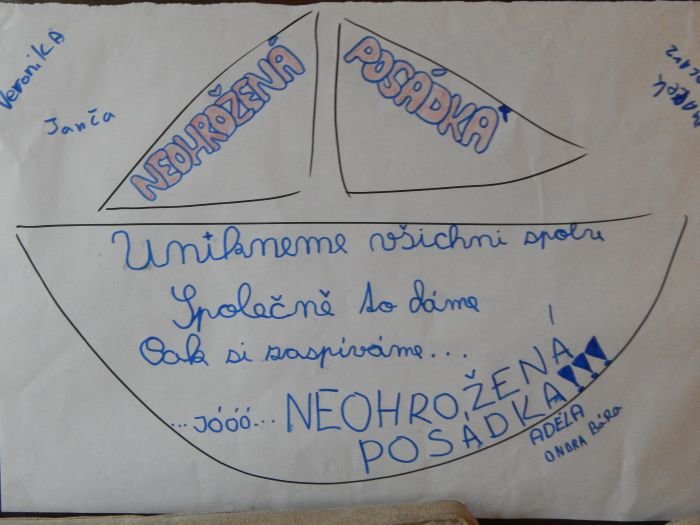 Veronika
Janča
NEOHRÓŽENÁ
POSÁDKA
Unikneme všichni spolu
Společně to dáme
Pak si zaspíváme...
...JÓÓÓ... NEOHROŽENÁ
POSÁDKA!!!
ADÉLA
ONDRA BÁRA